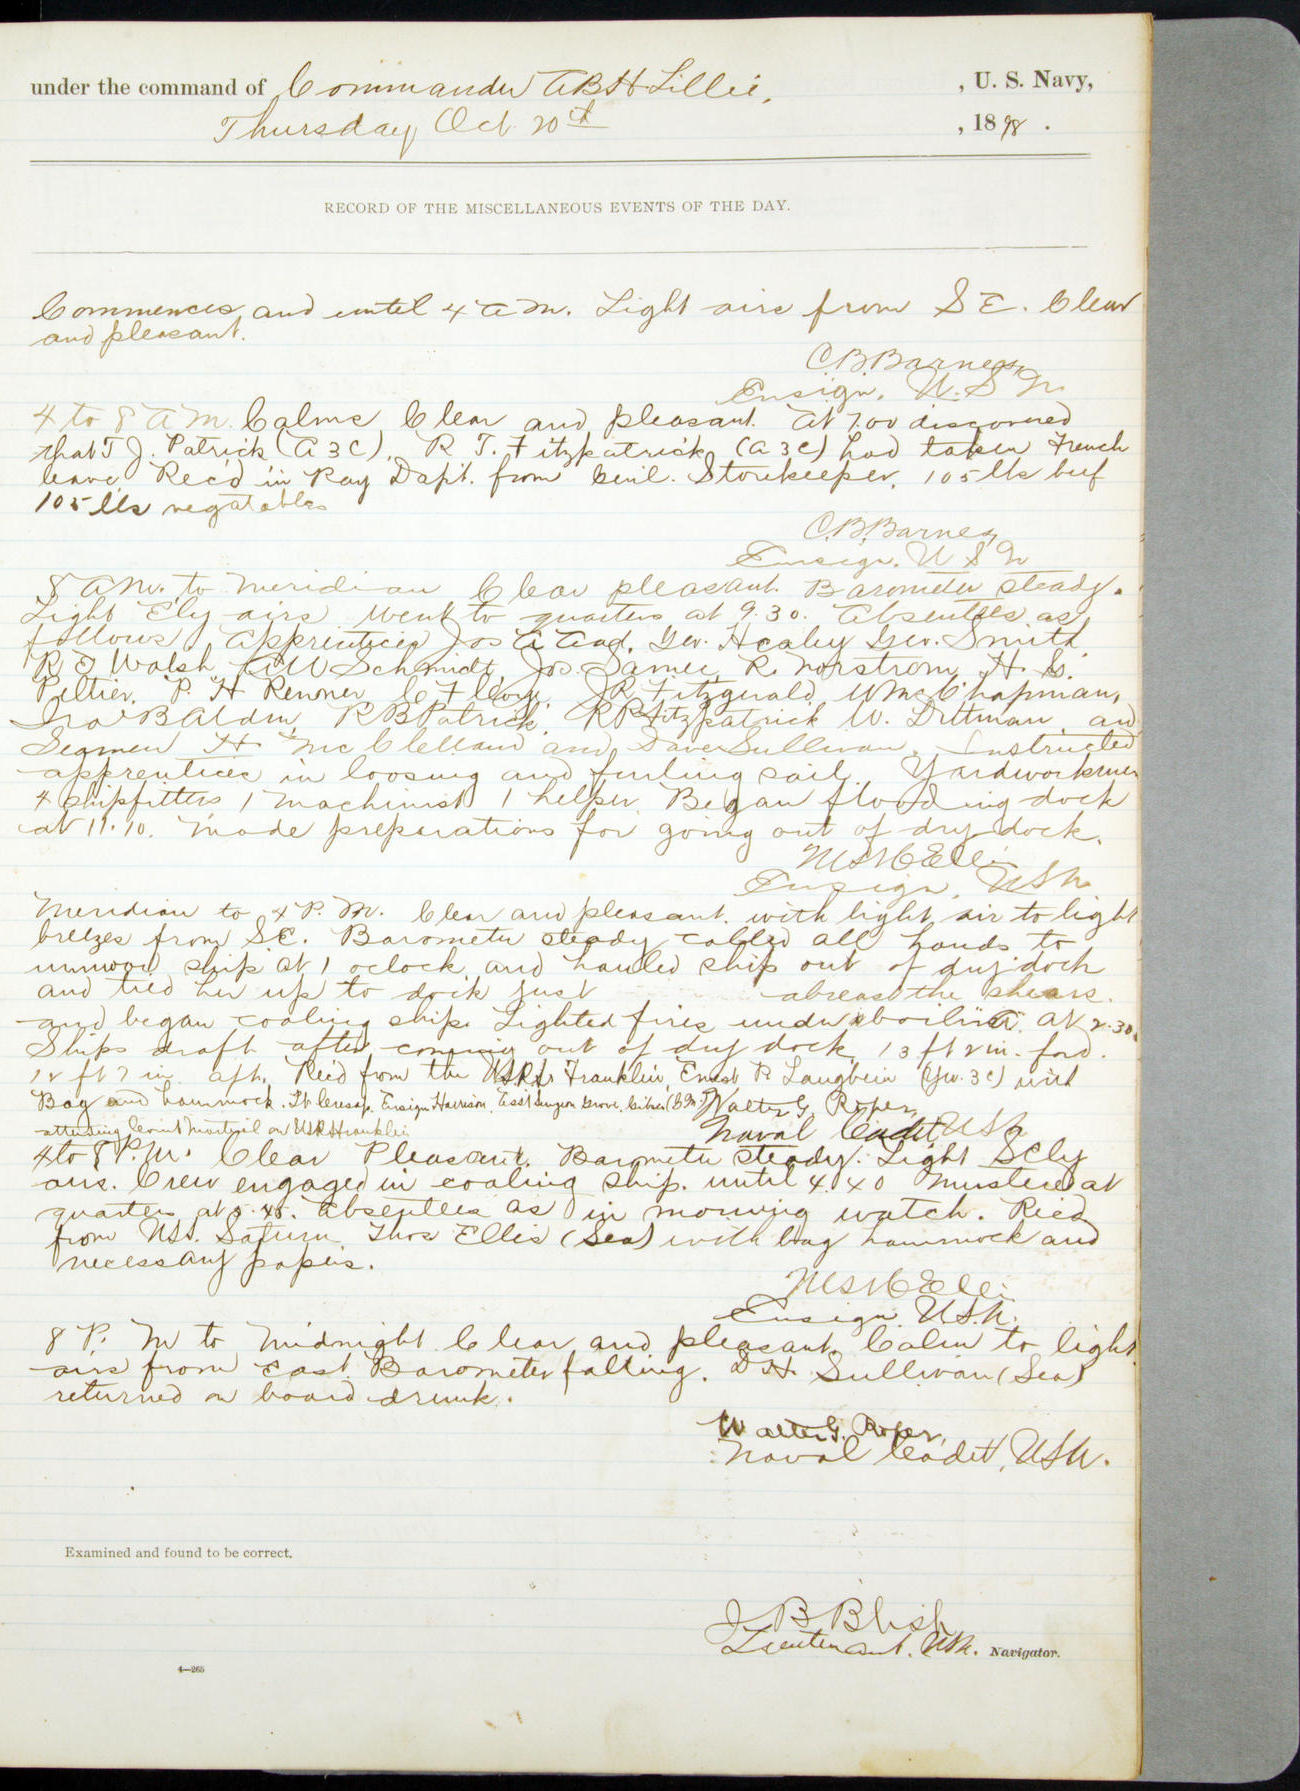 under the command of Commander A B H Lillie, , U. S. Navy,
Thursday Oct 20th , 1898 .
RECORD OF THE MISCELLANEOUS EVENTS OF THE DAY.
Commences and until 4 A M. Light airs from S E. Clear
and pleasant.
C. B. Barnes,
Ensign, U. S. N
4 to 8 A M. Calms Clear and pleasant. At 7.00 discovered
that T J. Patrick (A 3 C), R T. Fitzpatrick (A 3 C) had taken French
leave. Rec'd in Pay Dapt. from Genl. Storekeeper, 105 lbs beef
105 lbs vegatables
C. B. Barnes,
Ensign, U S N
8 A M. to Meridian Clear pleasant. Barometer steady.
Light E'ly airs. Went to quarters at 9.30. Absentees as
follows Apprentices Jos Geo. Healey Geo. Smith,
R J Walsh, W Schmidt, Jos. James, R. Norstrom, H. G.
Peltier, P. H Renner, C F J R Fitzgerald, Wm C Chapman,
Ira B Aldin, R B Patrick, R R Fitzpatrick W. Dittman and
Seamen H McClelland and Dave Sullivan. Instructed
apprentices in loosing and furling sail. Yardworkmen
4 shipfitters 1 machinist 1 helper. Began flooding dock
at 11.10. Made preparations for going out of dry dock.
Ensign, USN
Meridian to 4 P. M. Clear and pleasant. with light air to light
breezes from S.E. Barometer steady called all hands to
unmoor ship at 1 oclock and hauled ship out of dry dock
and tied her up to dock just abreast the shears.
and began coaling ship. Lighted fires under boiler at 2.30.
Ships draft after coming out of dry dock 13 ft 2 in. ford.
12 ft 7 in aft. Rec'd from the U.S.R.S. Franklin, Ernest R Langbein (Yeo. 3 c) with
Bag and hammock. Lt. Cresap, Ensign Harrison, Ass't Surgeon Grove, (B.M.)
attending Court Martial on USRS Franklin
Walter G. Roper,
Naval Cadet, USN
4 to 8 P.M. Clear Pleasant. Barometer steady. Light SE'ly
airs. Crew engaged in coaling ship. until 4.40 Mustered at
quarters at 5.45. Absentees as in morning watch. Rec'd
from USS. Saturn Thos Ellis (Sea) with bag hammock and
necessary papers.
Ensign. U.S.N.
8 P. M to Midnight Clear and pleasant. Calm to light
airs from east. Barometer falling. D H. Sullivan (Sea)
returned on board drunk.
Walter G. Roper,
Naval Cadet, USN.
Examined and found to be correct.
J B Blish
Lieutenant, USN. Navigator.
4—265